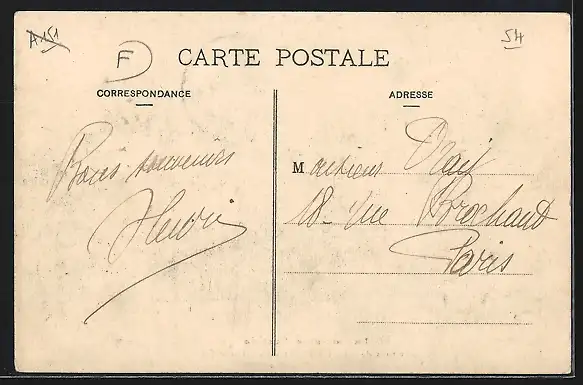 A 151
F
54
CARTE POSTALE
CORRESPONDANCE
ADRESSE
Bons souvenirs
Henri
Monsieur
18 rue Brochant
Paris